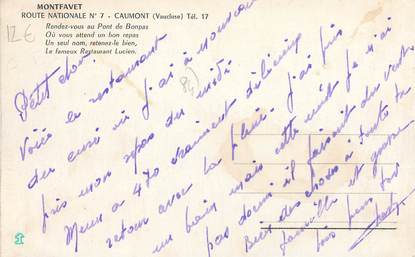 MONTFAVET
ROUTE NATIONALE N° 7 - CAUMONT (Vaucluse) Tél. 17
Rendez-vous au Pont de Bonpas
Où vous attend un bon repas
Un seul nom, retenez-le bien,
Le fameux Restaurant Lucien.
12 €
84
Petit chou.
Voici le restaurant
du curé où j'ai à nouveau
pris mon repas du midi.
Menu à 470 vraiment délicieux
retour avec la pluie. J'ai pris
un bain mais cette nuit je n'ai
pas dormi il faisait du vent
Bien des choses à toute ta
famille et grosses
bises pour toi